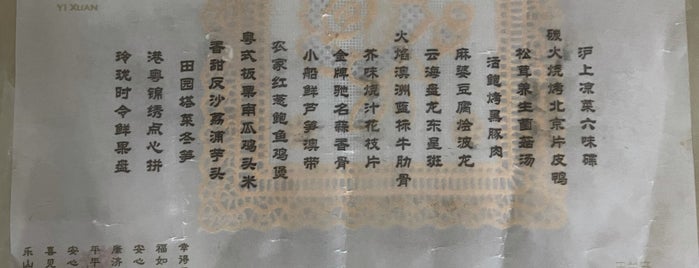 YI XUAN
沪上凉菜六味碟
碳火烧烤北京片皮鸭
松茸养生菌菇汤
活鲍烤黑豚肉
麻婆豆腐烩波龙
云海盘龙东星斑
火焰澳洲蓝标牛肋骨
芥味烧汁花枝片
金牌驰名蒜香骨
小船鲜芦笋澳带
农家红葱鲍鱼鸡煲
粤式板栗南瓜鸡头米
香甜反沙荔浦芋头
田园塔菜冬笋
港粤锦绣点心拼
玲珑时令鲜果盘
幸得
福如
安心
康济
平平
安心
喜见
乐山